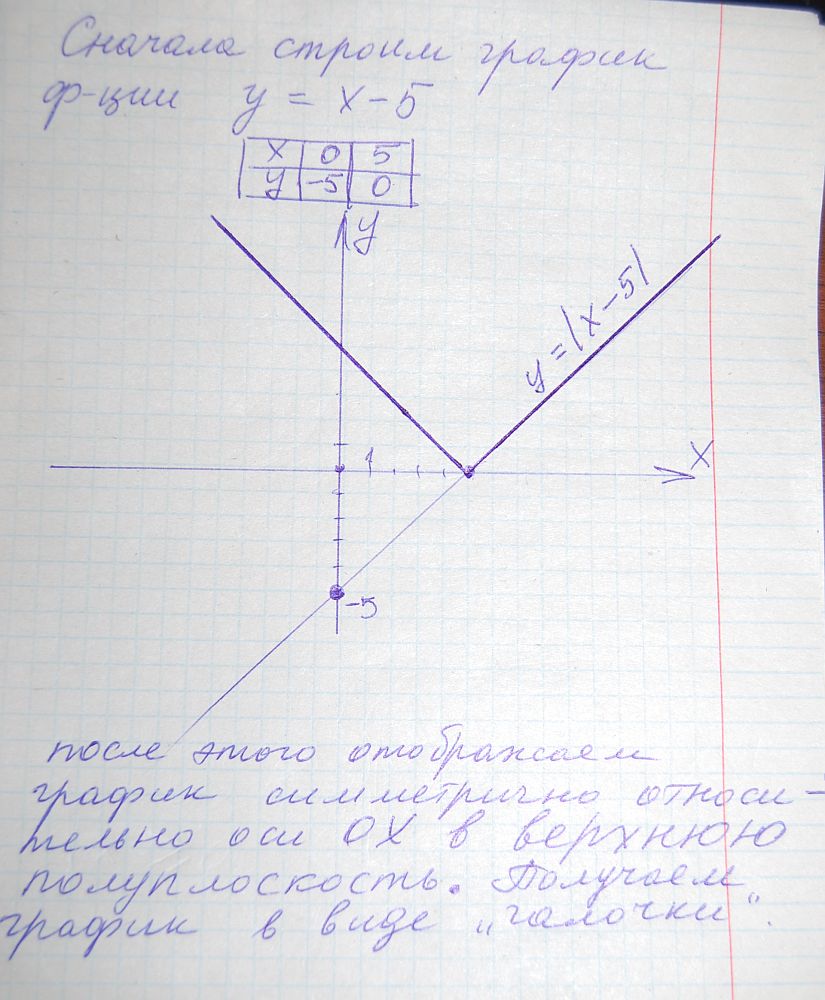 Сначала строим график
ф-ции y = x - 5
x 0 5
y -5 0
y
y = |x - 5|
1
x
-5
после этого отображаем
график симметрично относи-
тельно оси OX в верхнюю
полуплоскость. Получаем
график в виде „галочки".